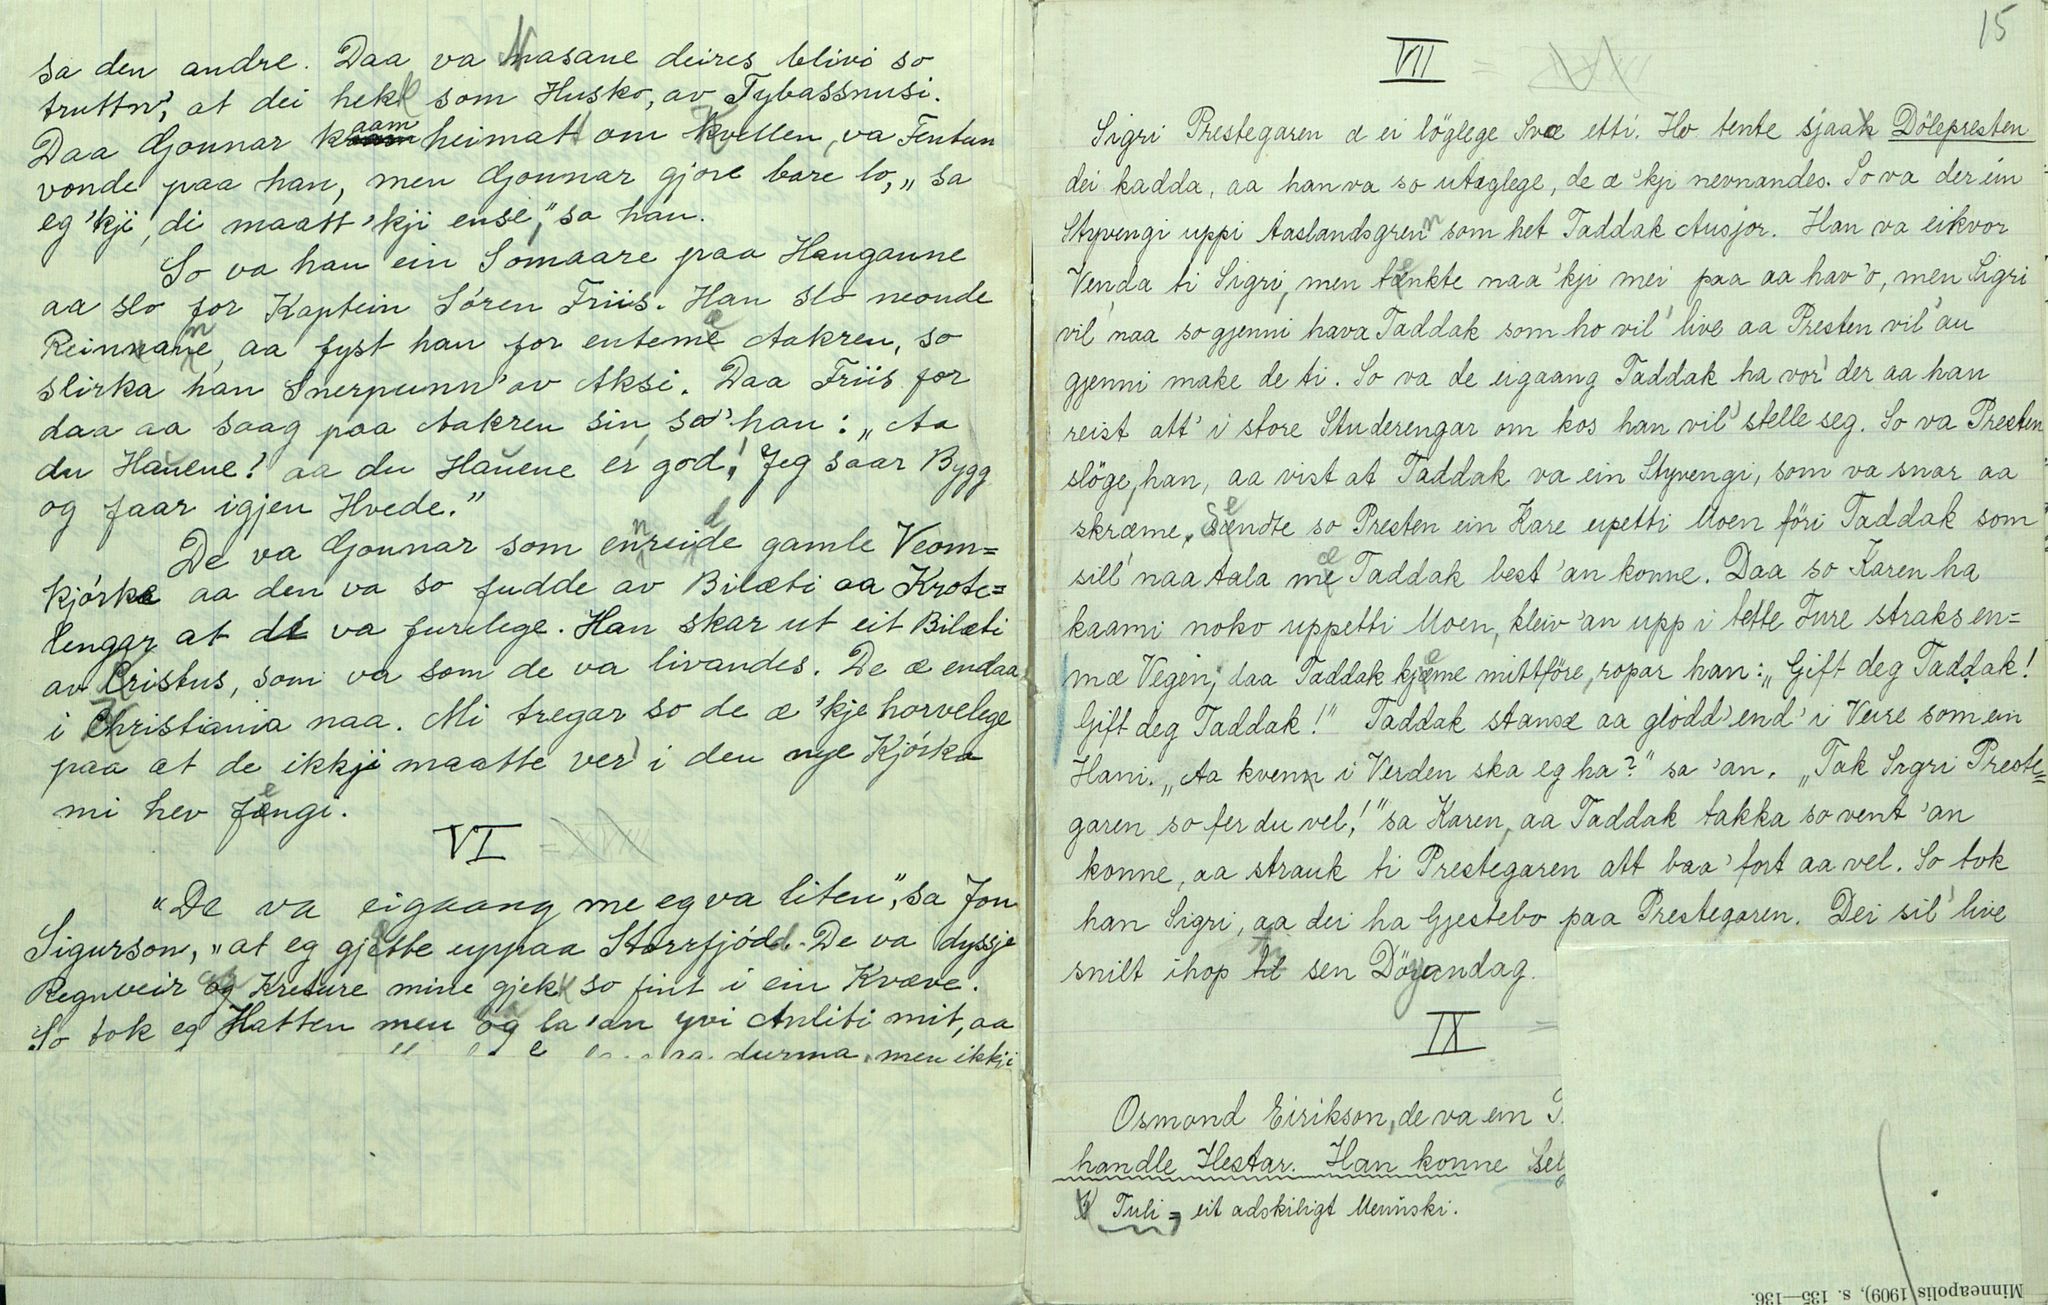 sa den andre. Daa va Nasane deires blivi so
truttn', at dei hekk som Husko, av Tybassnusi.
Daa Gonnar kaam heimatt om Kvellen, va Fentun
vonde paa han, men Gonnar gjore bare lo, „sa
eg 'kji, di maatt 'kji ense," sa han.
So va han ein Somaare paa Hauganne
aa slo for Kaptein Sören Friis. Han slo neonde
Reinnanne, aa fyst han for entemæ Aakren, so
slirka han Snerpunn' av Aksi. Daa Friis for
daa aa saag paa Aakren sin, sa' han: „Aa
du Hauene! aa du Hauene er god! Jeg saar Bygg
og faar igjen Hvede."
De va Gonnar som ennreidde gamle Veom=
kjórka aa den va so fudde av Bilæti aa Krote=
lengar at de va furelege. Han skar ut eit Bilæti
av Kristus, som va som de va livandes. De æ endaa
i Kristiania naa. Mi tregar so de æ 'kje horvelege
paa at de ikkji maatte ver' i den nye Kjórka
mi hev fengi.
VI
"De va eigaang me eg va liten", sa Jon
Sigurson, „at eg gjette uppaa Storrfjódd. De va dyssje
Regnveir og Kreture mine gjekk so fint i ein Kvæve.
So tok eg Hatten men og la 'an yvi Anliti mit, aa
durma, men ikkji
15
VII
Sigri Prestegaren æ ei löglege Svæ etti. Ho tente sjaa Dölepresten
dei kadda, aa han va so utæglege, de æ 'kji nevnandes. So va der ein
Styvengi uppi Aaslandsgrenn som het Taddak Ausjor. Han va eikvor
Venda ti Sigri, men tenkte naa 'kji mei paa aa hav 'o, men Sigri
vil' naa so gjenni hava Taddak som ho vil' live aa Presten vil' au
gjenni make de ti. So va de eigaang Taddak ha vor' der aa han
reist att' i store Studerengar om kos han vil' stelle seg. So va Presten
slöge, han, aa vist at Taddak va ein Styvengi, som va snar aa
skræme. Sendte so Presten ein Kare upetti Moen föri Taddak som
sill' naa tala mæ Taddak best 'an konne. Daa so Karen ha
kaami noko uppetti Moen, kleiv 'an upp i tette Fure straks en=
mæ Vegen; daa Taddak kjeme mittföre, ropar han: „Gift deg Taddak!
Gift deg Taddak!" Taddak stansæ aa glodd' end' i Veire som ein
Hani. „Aa kvenn i Verden ska eg ha?" sa 'an. „Tak Sigri Preste=
garen so fer du vel!" sa Karen, aa Taddak takka so vent 'an
konne, aa strauk ti Prestegaren att baa' fort aa vel. So tok
han Sigri, aa dei ha Gjestebo paa Prestegaren. Dei sil' live
snilt ihop ti sen Döyandag.
IX
Osmond Eirikson, de va ein
handle Hestar. Han konne
Tuli = eit adskiligt Menniski.
Minneapolis 1909), s. 135—136.